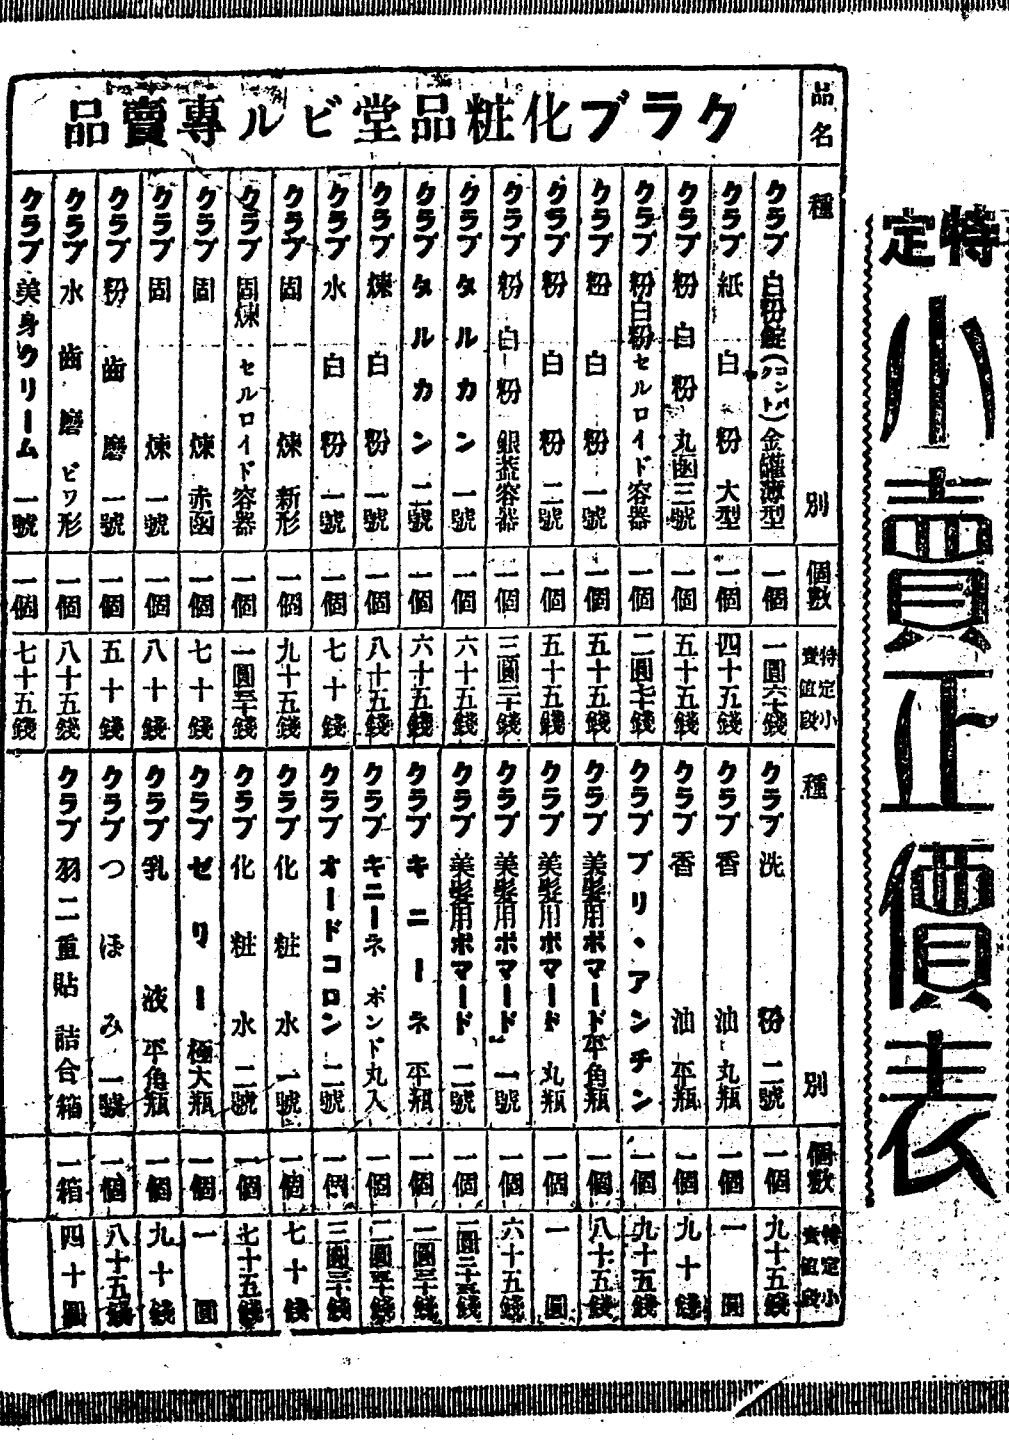 特定
小賣正價表
品名
クラブ化粧品堂ビル專賣品
種別
個數
特定小賣値段
クラブ白粉錠(コンパクト)金罐薄型 一個 一圓六十錢
クラブ紙白粉大型 一個 四十五錢
クラブ粉白粉丸函三號 一個 五十五錢
クラブ粉白粉セルロイド容器 一個 二圓七十錢
クラブ粉白粉一號 一個 五十五錢
クラブ粉白粉二號 一個 五十五錢
クラブ粉白粉銀蓋容器 一個 三圓二十錢
クラブタルカン一號 一個 六十五錢
クラブタルカン二號 一個 六十五錢
クラブ煉白粉一號 一個 八十五錢
クラブ水白粉一號 一個 七十錢
クラブ固煉新形 一個 九十五錢
クラブ固煉セルロイド容器 一個 一圓五十錢
クラブ固煉赤函 一個 七十錢
クラブ固煉一號 一個 八十錢
クラブ粉齒磨一號 一個 五十錢
クラブ水齒磨ビワ形 一個 八十五錢
クラブ美身クリーム一號 一個 七十五錢
種別
個數
特定小賣値段
クラブ洗粉二號 一個 九十五錢
クラブ香油丸瓶 一個 一圓
クラブ香油平瓶 一個 九十錢
クラブブリ、アンチン 一個 九十五錢
クラブ美髮用ポマード平角瓶 一個 八十五錢
クラブ美髮用ポマード丸瓶 一個 一圓
クラブ美髮用ポマード一號 一個 六十五錢
クラブ美髮用ポマード二號 一個 一圓二十五錢
クラブキニーネ平瓶 一個 一圓三十錢
クラブキニーネポンド丸入 一個 二圓五十錢
クラブオードコロン二號 一個 三圓三十錢
クラブ化粧水一號 一個 七十錢
クラブ化粧水二號 一個 七十五錢
クラブゼリー極大瓶 一個 一圓
クラブ乳液平角瓶 一個 九十錢
クラブつほみ一號 一個 八十五錢
クラブ羽二重貼詰合箱 一箱 四十圓